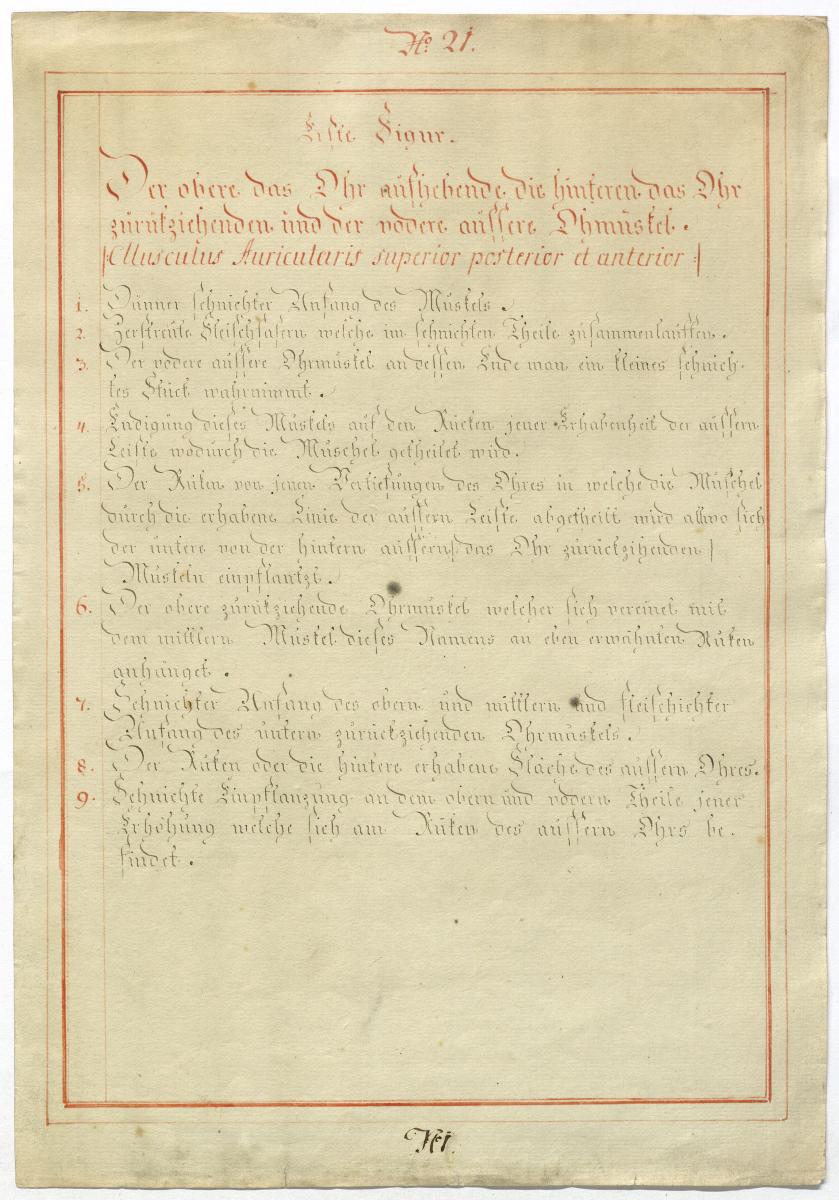 No. 21.
Erste Figur.
Der obere das Ohr aufhebende die hinteren das Ohr
zurükziehenden und der vodere aussere Ohmuskel.
|Musculus Auricularis superior posterior et anterior|
1. Dünner sehnichter Anfang des Muskels.
2. Zerstreute Fleischfasern welche im sehnichten Theile zusammenlauffen.
3. Der vodere aussere Ohrmuskel an dessen Ende man ein kleines sehnich-
tes Stück wahrnimmt.
4. Endigung dieses Muskels auf den Rücken jener Erhabenheit der aussern
Leiste wodurch die Muschel getheilet wird.
5. Der Rüken von jenen Vertiefungen des Ohres in welche die Muschel
durch die erhabene Linie der aussern Leiste abgetheilt wird allwo sich
der untere von der hintern aussern|das Ohr zurückzihenden|
Muskeln einpflantzt.
6. Der obere zurükziehende Ohrmuskel welcher sich vereinet mit
dem mittlern Muskel dieses Namens an eben erwähnten Rüken
anhänget.
7. Sehnichter Anfang des obern und mittlern und fleischichter
Anfang des untern zurückziehenden Ohrmuskels.
8. Der Rüken oder die hintere erhabene Fläche des aussern Ohres.
9. Sehnichte Einpflanzung an dem obern und vodern Theile jener
Erhöhung welche sich am Rüken des aussern Ohrs be-
findet.